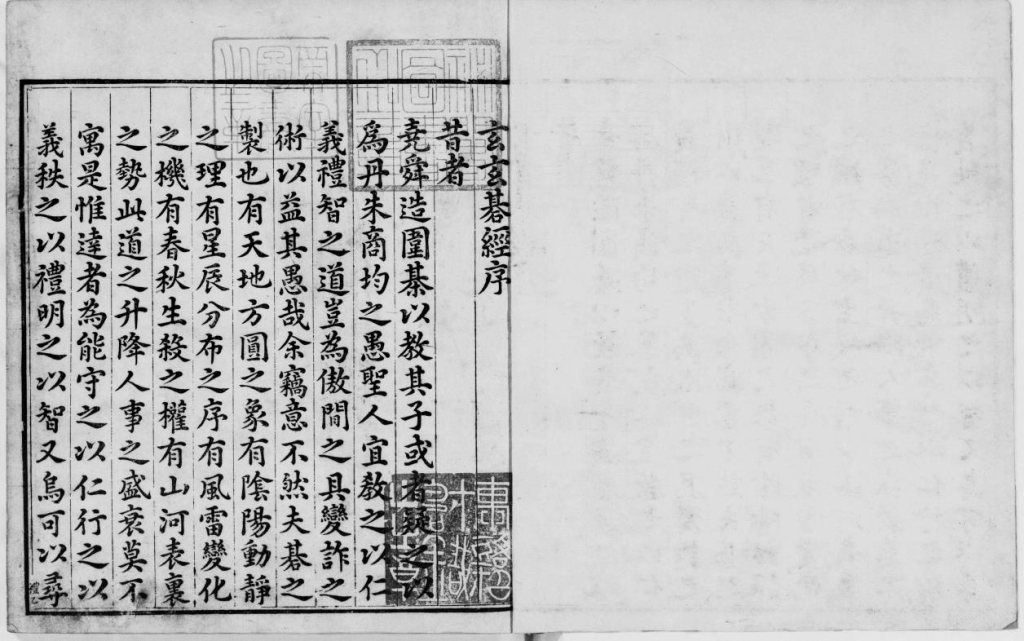 玄玄碁經序
昔者
堯舜造圍棊以教其子或者疑之以
爲丹朱商均之愚聖人宜教之以仁
義禮智之道豈為傲閒之具變詐之
術以益其愚哉余竊意不然夫碁之
製也有天地方圓之象有陰陽動靜
之理有星辰分布之序有風雷變化
之機有春秋生殺之權有山河表裏
之勢此道之升降人事之盛衰莫不
寓是惟達者為能守之以仁行之以
義秩之以禮明之以智又烏可以尋